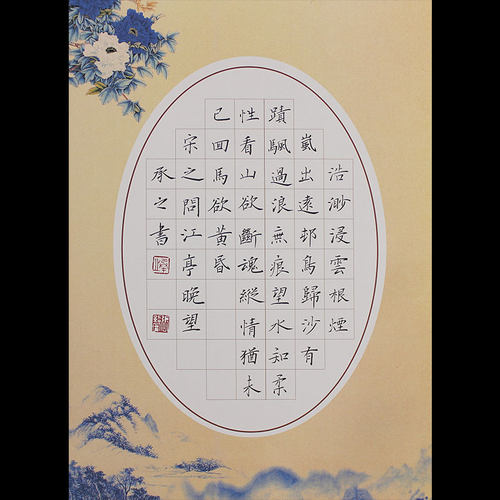 浩渺浸雲根煙
嵐出遠邨鳥歸沙有
蹟颿過浪無痕望水知柔
性看山欲斷魂縱情猶未
已回馬欲黃昏
宋之問江亭晚望
承之書